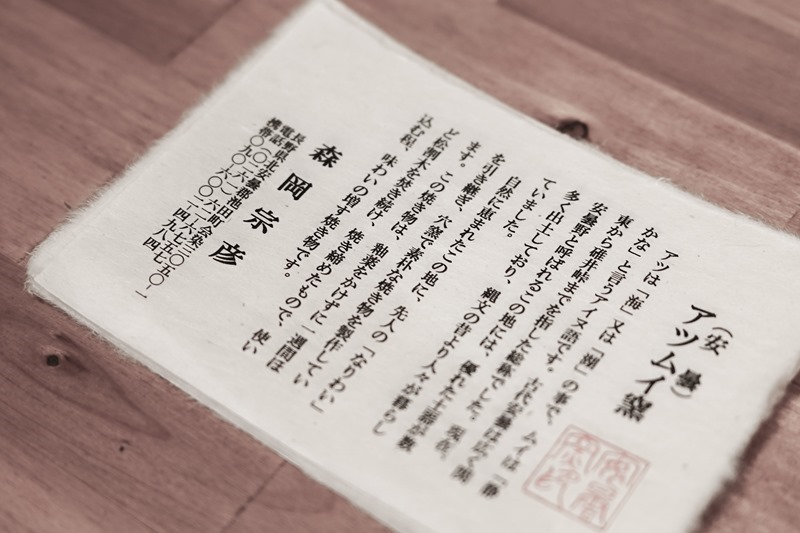 (安曇)
アツムイ窯
アツは「海」又は「湖」の事で、ムイは「静
かな」と言うアイヌ語です。古代安曇は広く関
東から碓井峠までを指した総称でした。現在、
安曇野と呼ばれるこの地には、優れた土器が数
多く出土しており、縄文の昔より人々が暮らし
ていました。
自然に恵まれたこの地に、先人の「なりわい」
を引き継ぎ、穴窯で素朴な焼き物を製作してい
ます。この焼き物は、釉薬をかけずに一週間ほ
ど松割木を焚き続け、焼き締めたもので、使い
込む程、味わいの増す焼き物です。
森岡宗彦
長野県北安曇郡池田町会染